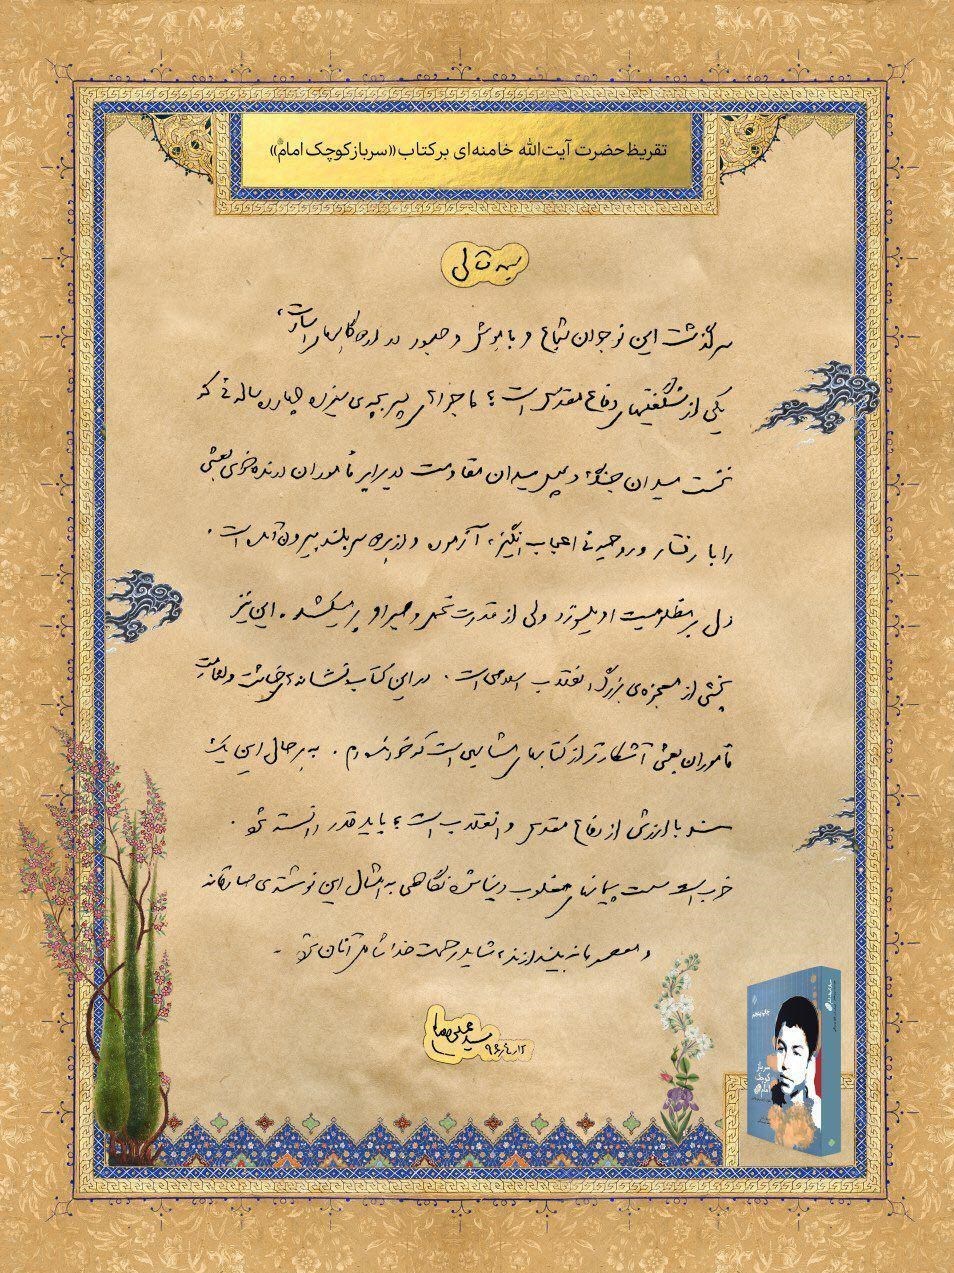 تقریظ حضرت آیت‌الله خامنه‌ای بر کتاب «سرباز کوچک امام»
بسمه تعالی
سرگذشت این نوجوان شجاع و باهوش و صبور در اردوگاههای اسارت،
یکی از شگفتیهای دفاع مقدس است؛ ماجراهای پسر بچه‌ی سیزده چهارده ساله‌ئی که
نخست میدان جنگ و سپس میدان مقاومت در برابر مأموران درنده‌خوی بعثی
را با رفتار و روحیه‌ئی اعجاب‌انگیز، آزموده و از هر دو سربلند بیرون آمده است.
دل بر مظلومیت او میسوزد ولی از قدرت تحمل و صبر او پر میکشد. این نیز
بخشی از معجزه‌ی بزرگ انقلاب اسلامی است. در این کتاب نشانه‌های خباثت و لئامت
مأموران بعثی آشکارتر از کتابهای مشابهی است که خوانده‌ام. به هر حال این یک
سند با ارزش از دفاع مقدس و انقلاب است؛ باید قدر دانسته شود.
خوب است سست پیمانهای مغلوب دنیا شده نگاهی به امثال این نوشته‌ی صادقانه
و معصومانه بیندازند، شاید رحمت خدا شامل آنان شود.
سید علی خامنه‌ای
۹۶/۴/۱۲
سرباز
کوچک
امام